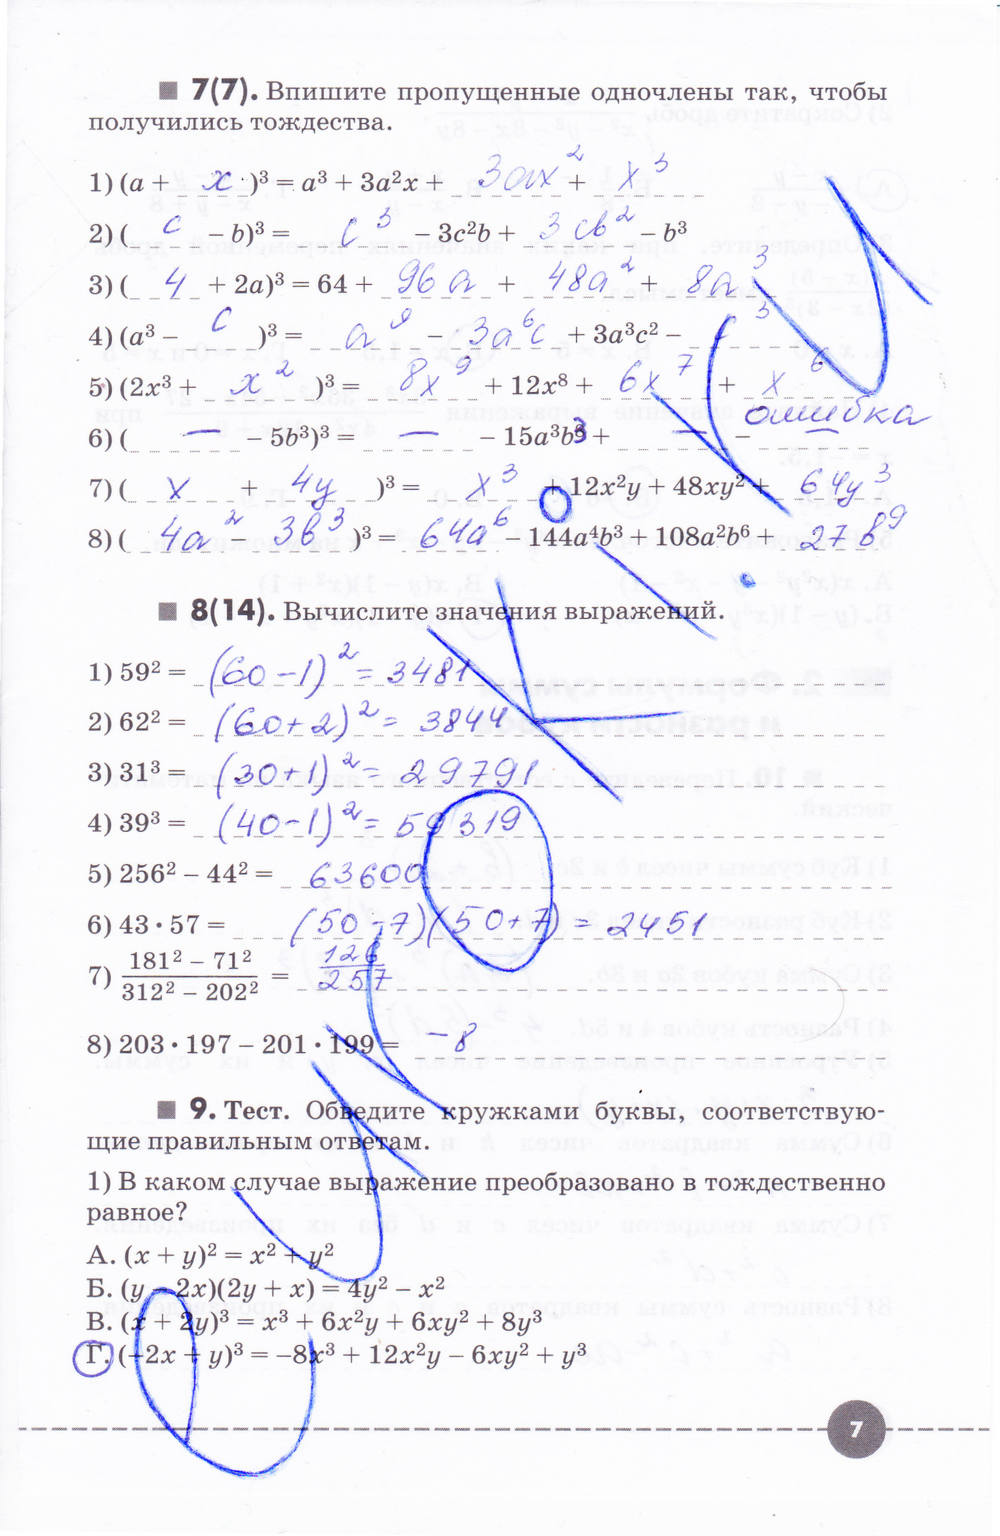 7(7). Впишите пропущенные одночлены так, чтобы
получились тождества.
1) (a + x)³ = a³ + 3a²x + 3ax² + x³
2) (c – b)³ = c³ – 3c²b + 3cb² – b³
3) (4 + 2a)³ = 64 + 96a + 48a² + 8a³
4) (a³ – c)³ = a⁹ – 3a⁶c + 3a³c² – c³
5) (2x³ + x²)³ = 8x⁹ + 12x⁸ + 6x⁷ + x⁶
ошибка
6) ( — – 5b³)³ = — – 15a³b³ + — –
7) (x + 4y)³ = x³ + 12x²y + 48xy² + 64y³
8) (4a² 3b³)³ = 64a⁶ – 144a⁴b³ + 108a²b⁶ + 27b⁹
8(14). Вычислите значения выражений.
1) 59² = (60-1)² = 3481
2) 62² = (60+2)² = 3844
3) 31³ = (30+1)² = 29791
4) 39³ = (40-1)² = 59319
5) 256² – 44² = 63600
6) 43 · 57 = (50-7)(50+7) = 2451
7) (181² – 71²)/(312² – 202²) = 126/257
8) 203 · 197 – 201 · 199 = -8
9. Тест. Обведите кружками буквы, соответствую-
щие правильным ответам.
1) В каком случае выражение преобразовано в тождественно
равное?
А. (x + y)² = x² + y²
Б. (y – 2x)(2y + x) = 4y² – x²
В. (x + 2y)³ = x³ + 6x²y + 6xy² + 8y³
Г. (–2x + y)³ = –8x³ + 12x²y – 6xy² + y³
7